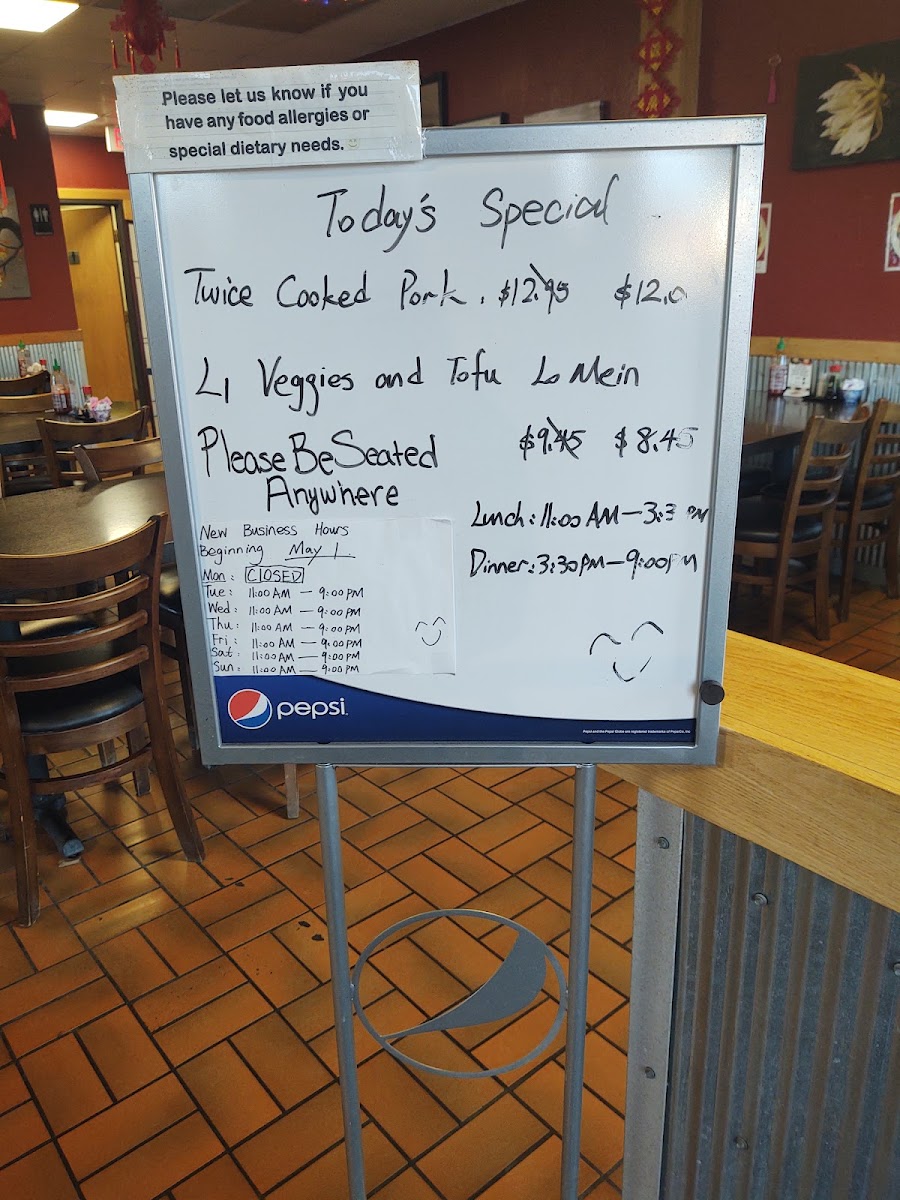 Please let us know if you
have any food allergies or
special dietary needs.
Today's Special
Twice Cooked Pork. $12.95 $12.0
L1 Veggies and Tofu Lo Mein
$9.45 $8.45
Please Be Seated
Anywhere
Lunch: 11:00 AM - 3:3 PM
Dinner: 3:30 PM - 9:00 PM
New Business Hours
Beginning May 1
Mon: CLOSED
Tue: 11:00 AM - 9:00 PM
Wed: 11:00 AM - 9:00 PM
Thu: 11:00 AM - 9:00 PM
Fri: 11:00 AM - 9:00 PM
Sat: 11:00 AM - 9:00 PM
Sun: 11:00 AM - 9:00 PM
pepsi